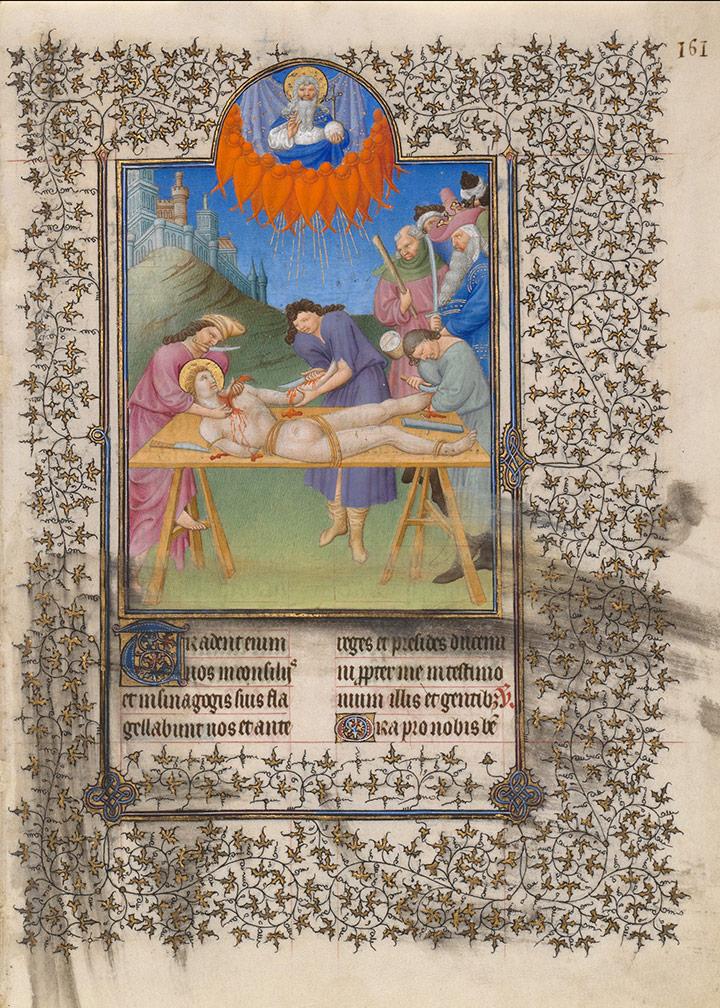 161
Tradent enim
uos in consilijs
et in sinagogis suis fla
gellabunt uos et ante
reges et presides ducemi
ni ꝓpter me in testimo
nium illis et gentibꝫ ℣.
Ora pro nobis bē